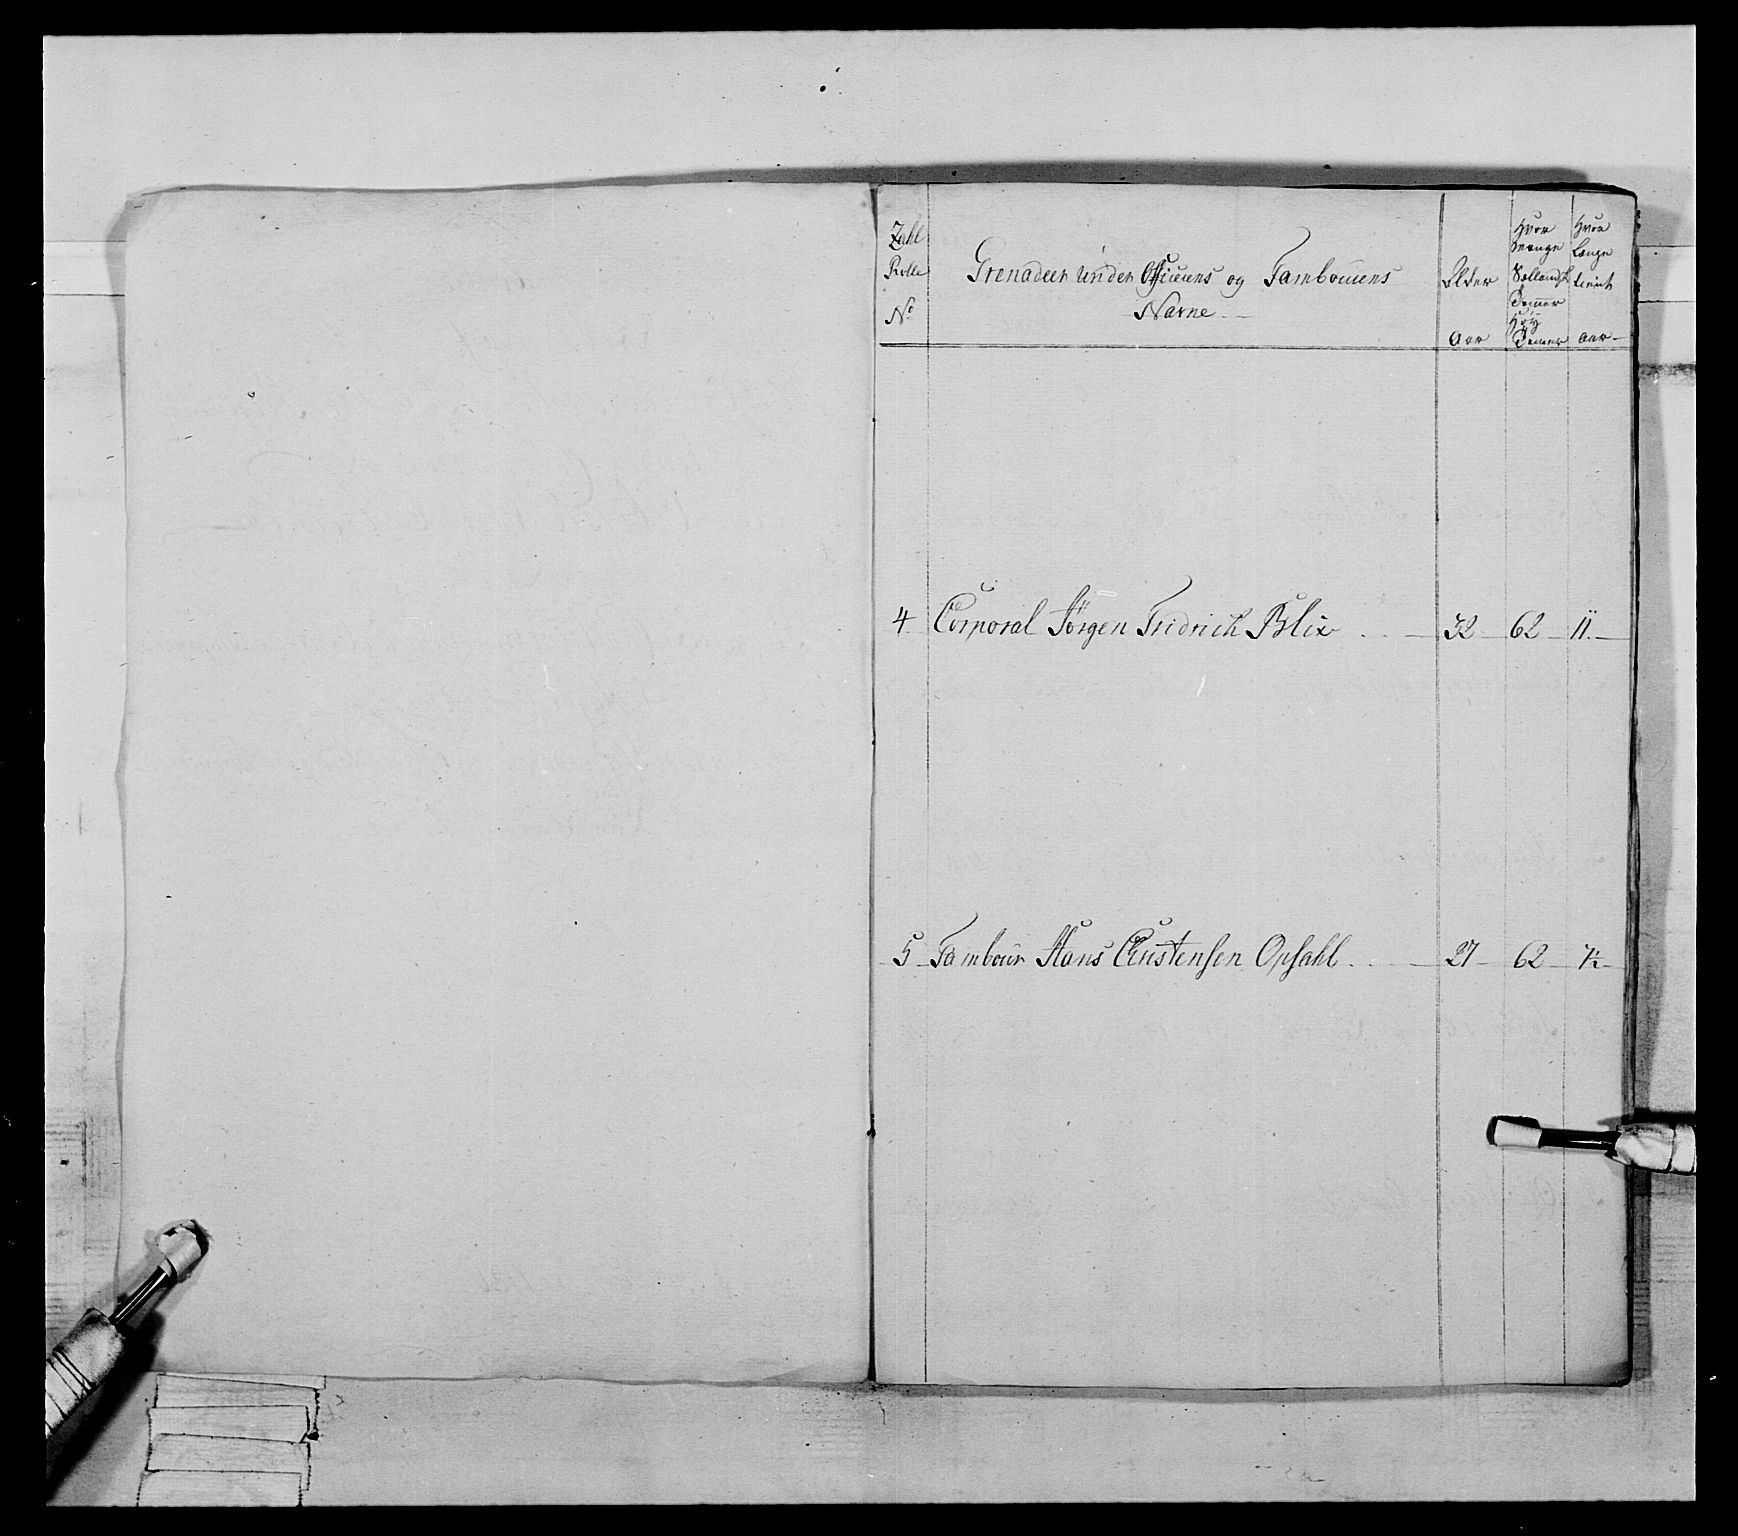 Zahl Rolle No
Grenadeer Under Officiers og Tambouiers
Navne
Alder
Aar
Hvor mange Sællandsk Tommer Høy Tommer
Hvor Længe tient aar
4 Corporal Jørgen Fridrich Blix 32 62 11
5 Tambour Hans Christensen Opsahl 27 62 7½